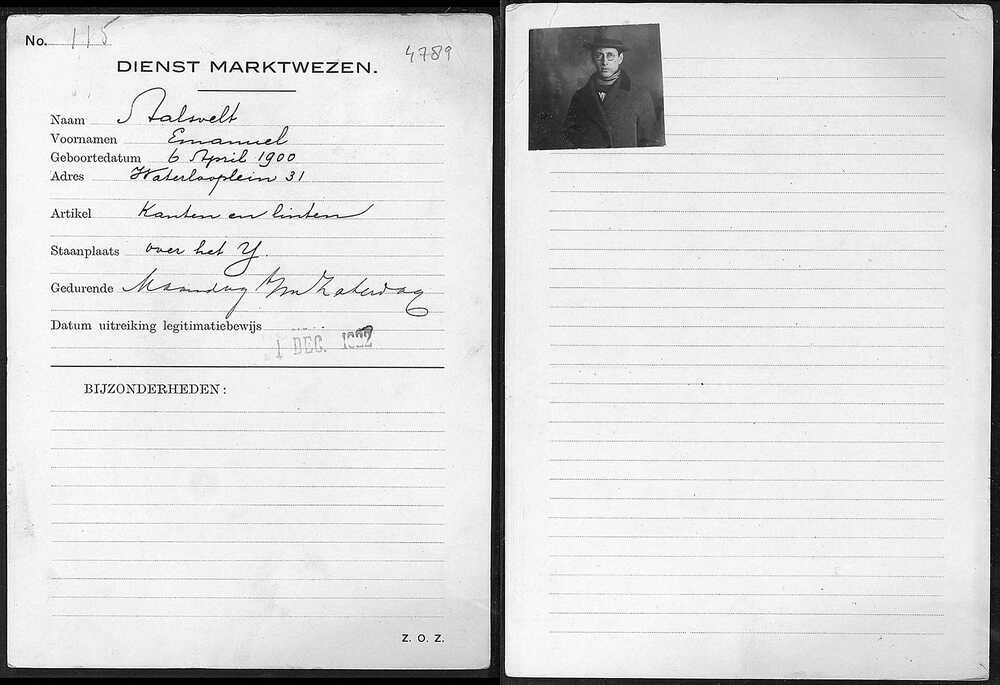 No. 115
4789
DIENST MARKTWEZEN.
Naam Aalsvelt
Voornamen Emanuel
Geboortedatum 6 April 1900
Adres Waterlooplein 31
Artikel Kanten en linten
Staanplaats over het Y.
Gedurende Maandag t/m Zaterdag
Datum uitreiking legitimatiebewijs
1 DEC. 1922
BIJZONDERHEDEN:
Z. O. Z.